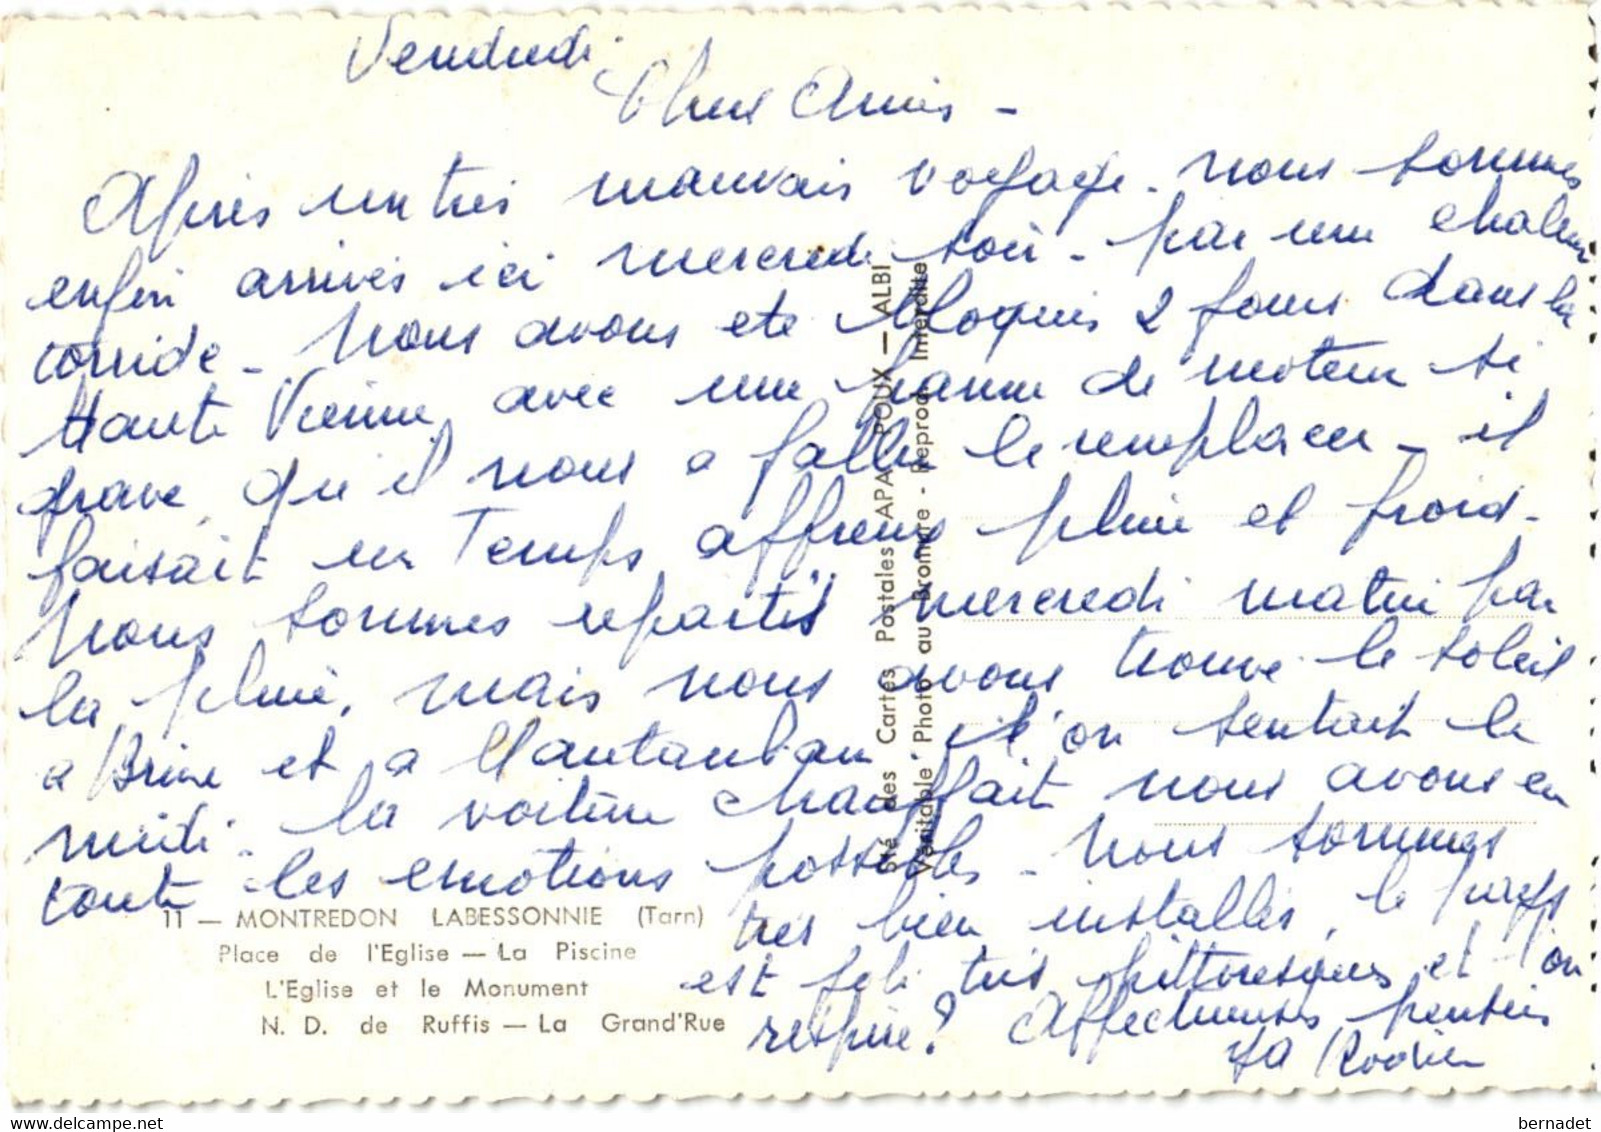 Vendredi.
Chers Amis -
Après un très mauvais voyage. nous sommes
enfin arrivés ici mercredi soir - par une chaleur
torride - Nous avons eté bloqués 2 jours dans la
Haute Vienne avec une panne de moteur si
grave, qu'il nous a fallu le remplacer - il
faisait un Temps affreux pluie et froid -
Nous sommes repartis mercredi matin par
la pluie, mais nous avons trouvé le soleil
a Brive et a Montauban et l'on sentait le
midi. la voiture chauffait nous avons eu
toute les emotions possibles - Nous sommes
très bien installés, le pays
est joli très pittoresques et l'on
respire! Affectueuses pensées
11 — MONTREDON LABESSONNIE (Tarn)
Place de l'Eglise — La Piscine
L'Eglise et le Monument
N. D. de Ruffis — La Grand'Rue
Sté des Cartes Postales APA - POUX — ALBI
Véritable Photo au Bromure - Reprod. Interdite
www.delcampe.net
bernadet